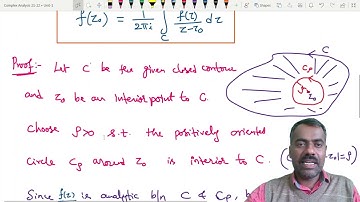 Complex Analysis 21-22 • Unit 3
f(z₀) = 1/2πi ∫_C f(z)/z-z₀ dz
Proof:- Let C be the given closed contour
and z₀ be an interior point to C.
Choose ρ>0 s.t. the positively oriented
circle Cρ around z₀ is interior to C. (
z₀|=ρ)
Since f(z) is analytic b/n C & Cρ, b
C
Cρ
ρ
z₀